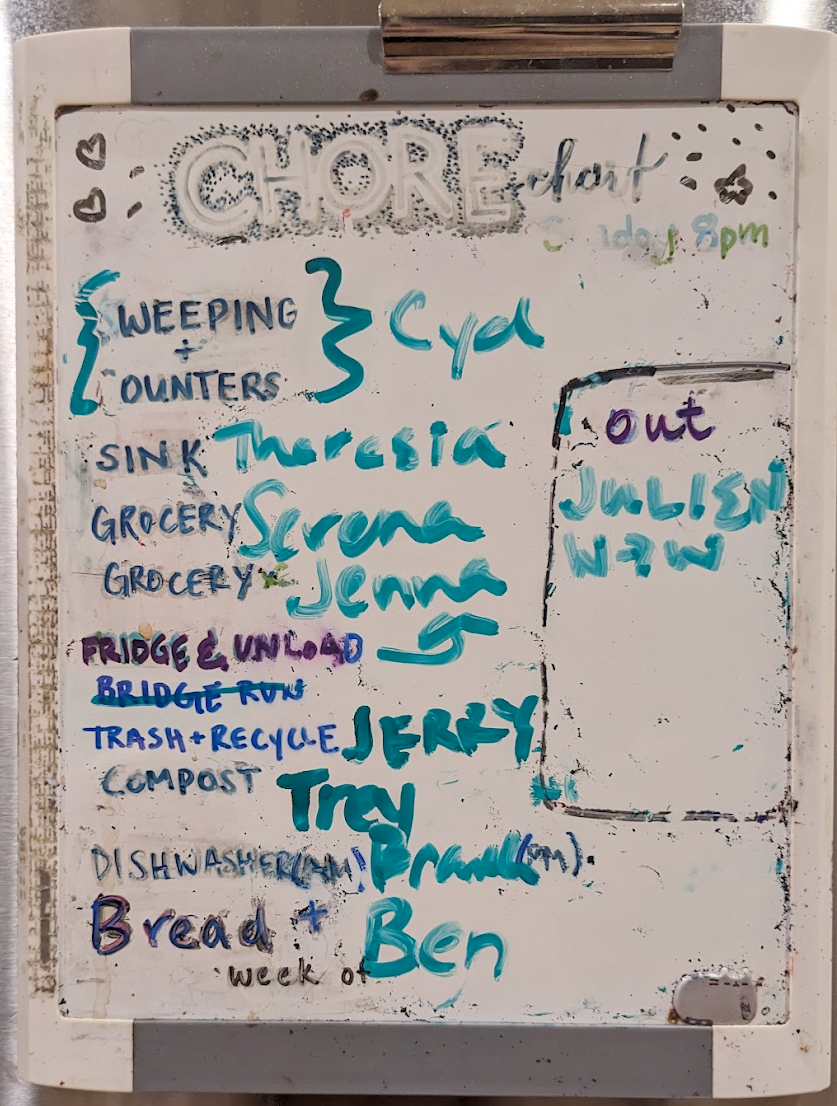 CHORE chart
8pm
WEEPING
+
OUNTERS
Cyd
SINK Theresia
GROCERY Serena
GROCERY Jenna
FRIDGE & UNLOAD
BRIDGE RUN
TRASH + RECYCLE JERRY
COMPOST Trey
DISHWASHER (AM) (PM)
Bread + Ben
week of
out
JULIEN